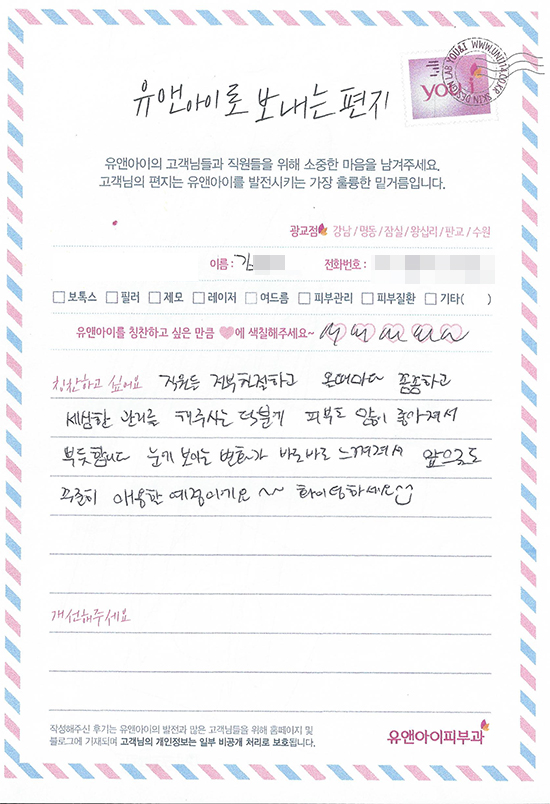 유앤아이로 보내는 편지
YOU&I WWW.UNI114.CO.KR SKIN DESIGN LAB
you&i
유앤아이의 고객님들과 직원들을 위해 소중한 마음을 남겨주세요.
고객님의 편지는 유앤아이를 발전시키는 가장 훌륭한 밑거름입니다.
광교점 강남 / 명동 / 잠실 / 왕십리 / 판교 / 수원
이름 : 김 전화번호 :
보톡스 필러 제모 레이저 여드름 피부관리 피부질환 기타( )
유앤아이를 칭찬하고 싶은 만큼 에 색칠해주세요~
칭찬하고 싶어요 직원들 전부 친절하고 올때마다 꼼꼼하고
세심한 관리를 해주시는 덕분에 피부도 많이 좋아져서
뿌듯합니다 눈에 보이는 변화가 바로바로 느껴져서 앞으로도
꾸준히 애용할 예정이에요 ~~ 화이팅하세요
개선해주세요
작성해주신 후기는 유앤아이의 발전과 많은 고객님들을 위해 홈페이지 및
블로그에 기재되며 고객님의 개인정보는 일부 비공개 처리로 보호됩니다.
유앤아이피부과